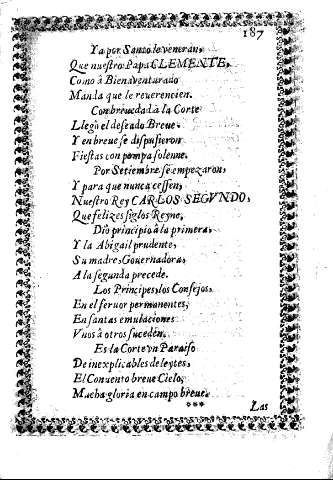 187
Ya por Santo le veneran,
Que nuestro Papa CLEMENTE,
Como à Bienaventurado
Manda que le reverencien.
Con brevedad à la Corte
Llegò el deseado Breve.
Y en breve se dispusieron
Fiestas con pompa solene.
Por Setiembre se empezaron,
Y para que nunca cessen,
Nuestro Rey CARLOS SEGVNDO,
Que felizes siglos Reyne,
Diò principio à la primera,
Y la Abigail prudente,
Su madre, Governadora,
A la segunda precede.
Los Principes, los Consejos,
En el fervor permanentes,
En santas emulaciones
Vnos à otros suceden.
Es la Corte vn Paraiso
De inexplicables deleytes,
El Convento breve Cielo,
Mucha gloria en campo breve.
***
Las